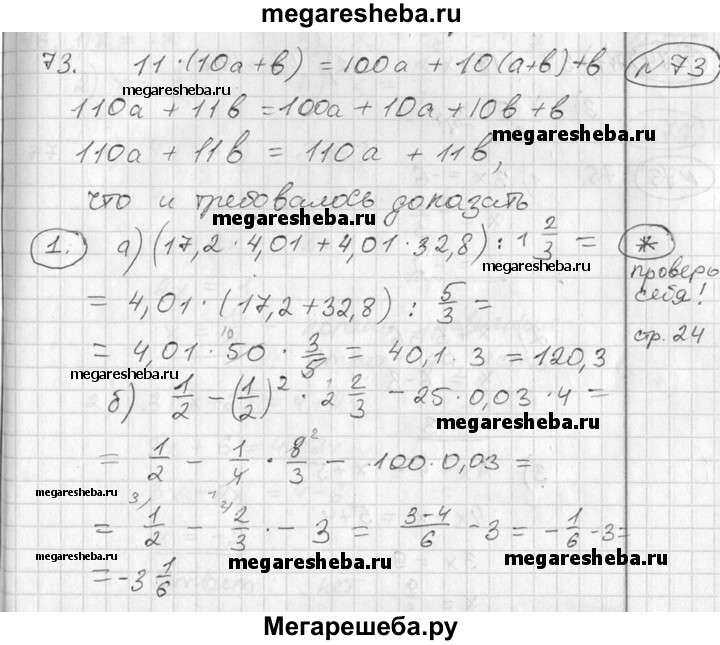 megaresheba.ru
73. 11·(10a+в) = 100a + 10(a+в)+в №73
megaresheba.ru
110a + 11в = 100a + 10a + 10в + в
megaresheba.ru
110a + 11в = 110a + 11в,
megaresheba.ru
что и требовалось доказать
megaresheba.ru
1. а) (17,2·4,01 + 4,01·32,8) : 1 2/3 = *
проверь себя!
= 4,01·(17,2+32,8) : 5/3 =
стр. 24
= 4,01·50·3/5 = 40,1·3 = 120,3
10
megaresheba.ru
megaresheba.ru
б) 1/2 − (1/2)²·2 2/3 − 25·0,03·4 =
megaresheba.ru
= 1/2 − 1/4·8/3 − ·100·0,03 =
2
megaresheba.ru
= 3/ 1/2 − 2/3·− 3 = (3−4)/6 − 3 = −1/6 −3=
megaresheba.ru
megaresheba.ru
megaresheba.ru
= −3 1/6
Мегарешеба.ру